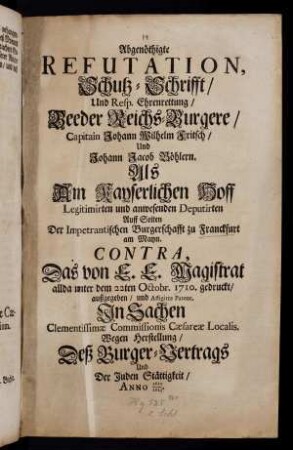 Abgenöthigte
REFUTATION,
Schutz-Schrifft/
Und Resp. Ehrenrettung/
Beeder Reichs-Burgere/
Capitain Johann Wilhelm Fritsch/
Und
Johann Jacob Böhlern.
Als
Am Kayserlichen Hoff
Legitimirten und anwesenden Deputirten
Auff Seiten
Der Impetrantischen Burgerschafft zu Franckfurt
am Mayn.
CONTRA,
Das von E. E. Magistrat
allda unter dem 22ten Octobr. 1710. gedruckt/
außgegeben/ und Affigirte Patent.
In Sachen
Clementissimæ Commissionis Cæsareæ Localis.
Wegen Herstellung/
Deß Burger-Vertrags
Und
Der Juden Stättigkeit/
ANNO